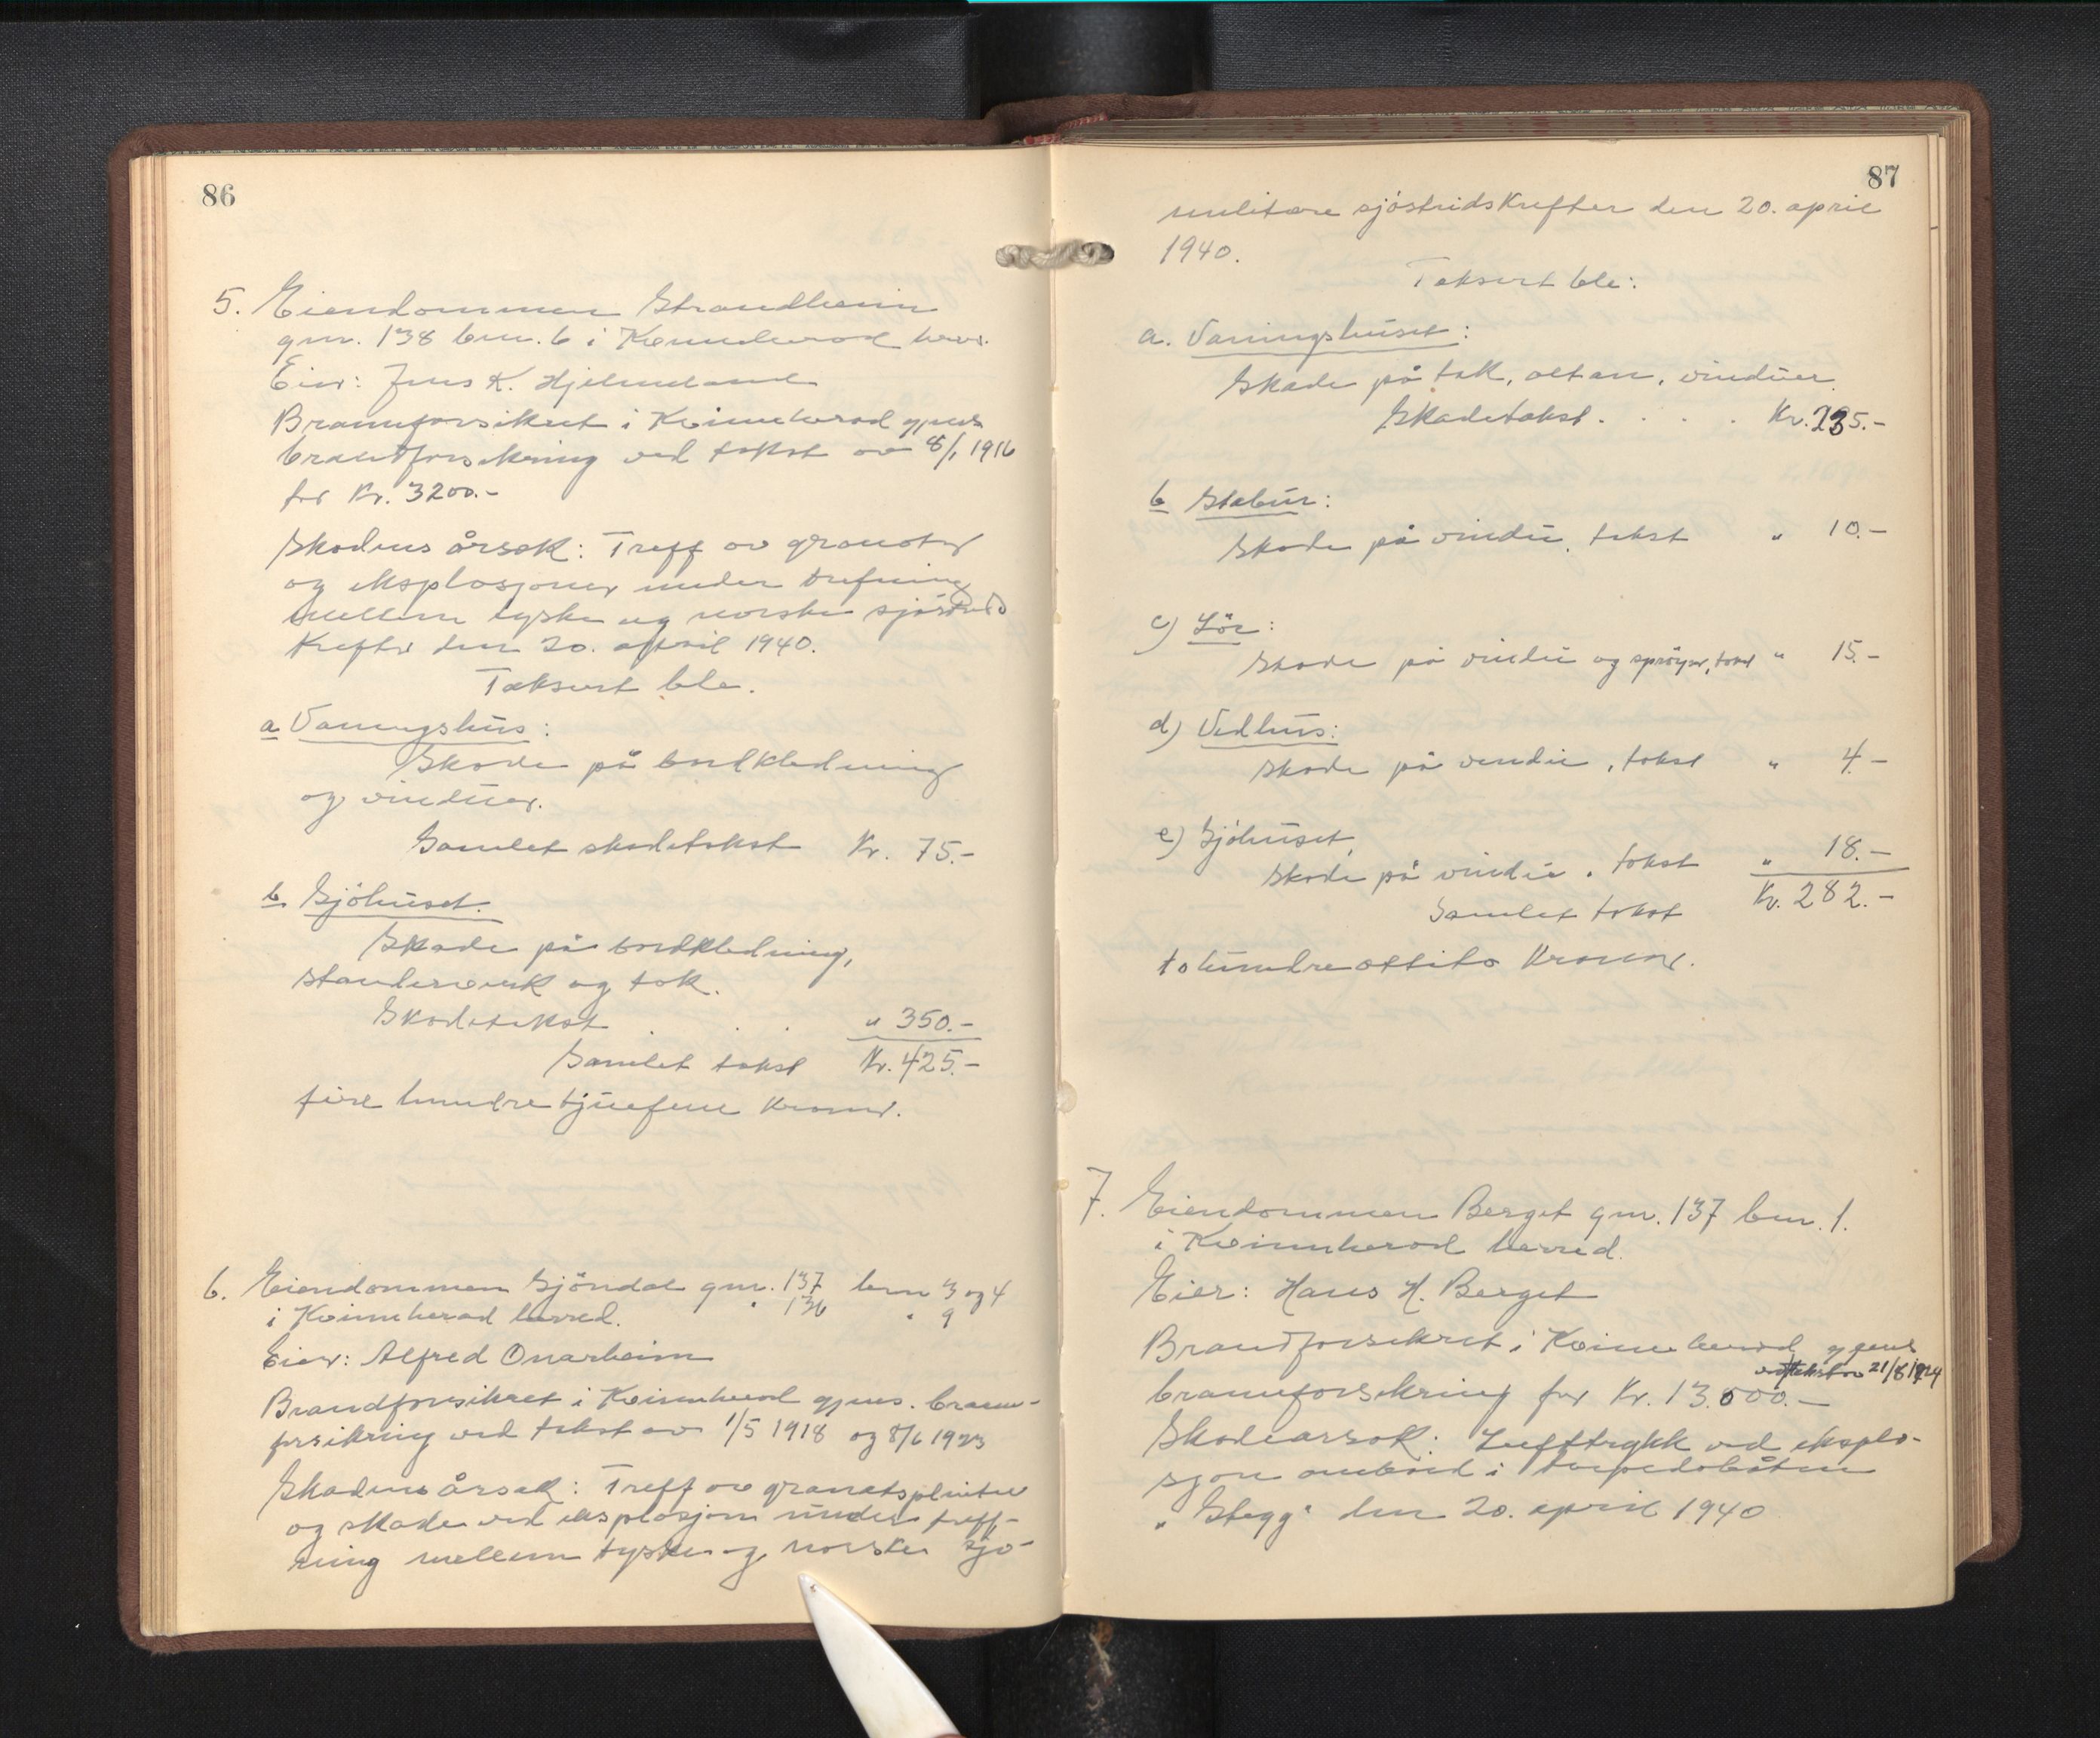 86
5. Eiendommen Strandheim
gnr. 138 bnr. 6 i Kvinnherad herr.
Eier: Jens K. Hjelmeland
Brannforsikret i Kvinnherad gjens.
brandforsikring ved takst av 8/1 1916
for Kr. 3200.-
Skadens årsak: Treff av granater
og eksplosjoner under trefning
mellem tyske og norske sjøstrids
krefter den 20. april 1940.
Taksert ble.
a Vaningshus:
Skade på bordkledning
og vinduer.
Samlet skadetakst Kr. 75.-
b. Sjöhuset.
Skade på bordkledning,
standerverk og tak.
Skadetakst . . . " 350.-
Samlet takst Kr. 425.-
fire hundre tjuefem kroner.
6. Eiendommen Sjöndal gnr. 137 bnr 3 og 4
i Kvinnherad herred. " 136 " 9
Eier: Alfred Onarheim
Brandforsikret i Kvinnherad gjens. brann-
forsikring ved takst av 1/5 1918 og 8/6 1923
Skadens årsak: Treff av granatsplinter
og skade ved eksplosjon under treff-
ning mellem tyske og norske sjö-
87
militære sjöstridskrefter den 20. april
1940.
Taksert ble:
a. Vaningshuset:
Skade på tak, altan, vinduer.
Skadetakst. . . . . Kr. 235.-
b Stabur:
Skade på vindu, takst " 10.-
c) Lör:
Skade på vindu og spröyser, takst " 15.-
d) Vedhus:
Skade på vindu, takst " 4.-
e) Sjöhuset,
Skade på vindu. takst " 18.-
Samlet takst Kr. 282.-
tohundreottito kroner.
7. Eiendommen Berget gnr. 137 bnr. 1.
i Kvinnherad herred.
Eier: Hans H. Berget
Brandforsikret i Kvinnherad gjens
ved takst av 21/8 1924
brannforsikring for Kr. 13.000.-
Skadeårsak: Lufttrykk ved eksplo-
sjon ombord i torpedobåten
"Stegg" den 20. april 1940